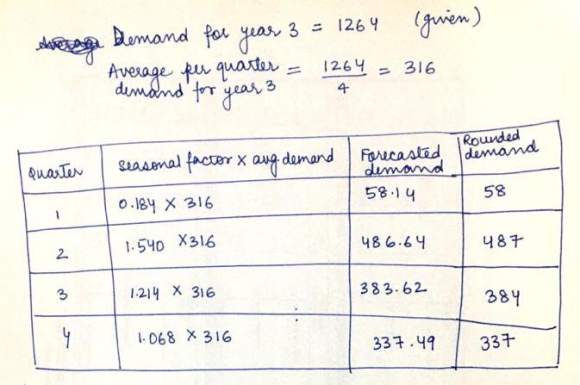 Demand for year 3 = 1264 (given)
Average per quarter demand for year 3 = 1264/4 = 316
Quarter | seasonal factor x avg demand | Forecasted demand | Rounded demand
1 | 0.184 x 316 | 58.14 | 58
2 | 1.540 x 316 | 486.64 | 487
3 | 1.214 x 316 | 383.62 | 384
4 | 1.068 x 316 | 337.49 | 337